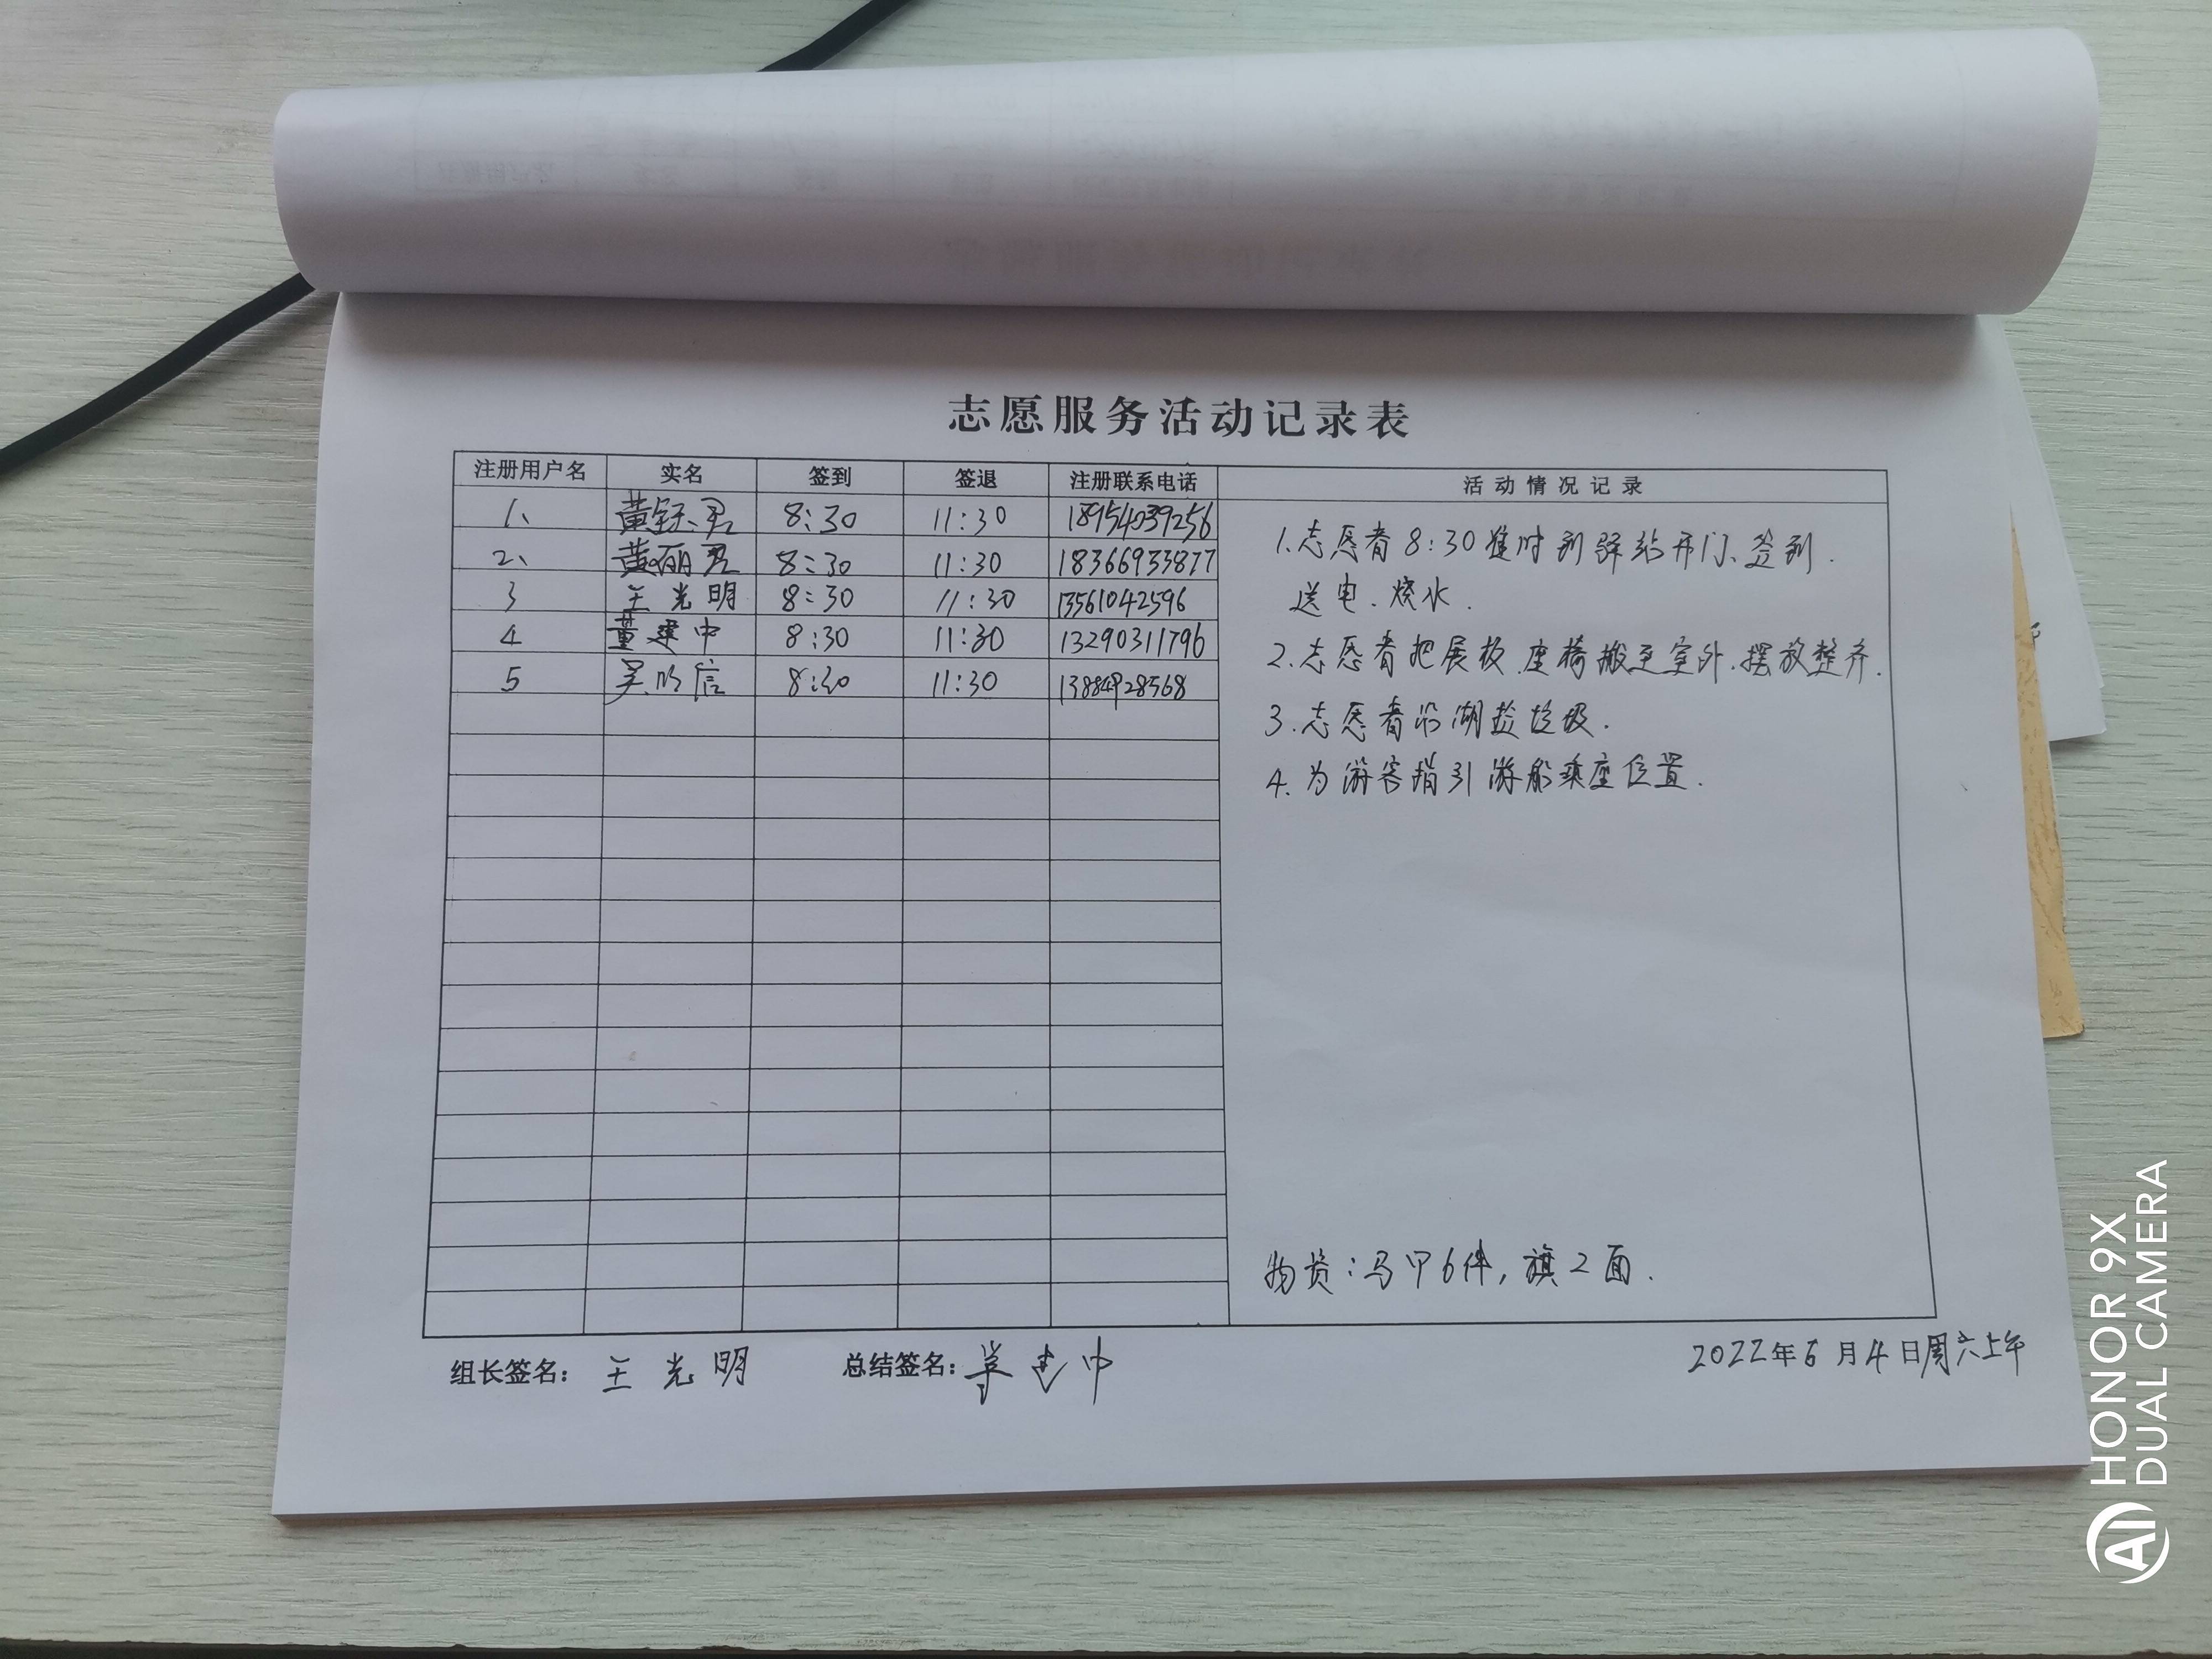 志愿服务活动记录表
注册用户名 实名 签到 签退 注册联系电话 活动情况记录
1、 黄钰君 8:30 11:30 18954039256
2、 黄丽君 8:30 11:30 18366933877
3 王光明 8:30 11:30 13561042596
4 董建中 8:30 11:30 13290311796
5 吴明信 8:30 11:30 13884928568
1.志愿者8:30准时到驿站开门、签到.
送电.烧水.
2.志愿者把展板.座椅搬至室外.摆放整齐.
3.志愿者沿湖捡垃圾.
4.为游客指引游船乘座位置.
物资:马甲6件,旗2面.
组长签名: 王光明 总结签名: 董建中 2022年6月4日周六上午
HONOR 9X
DUAL CAMERA
AI